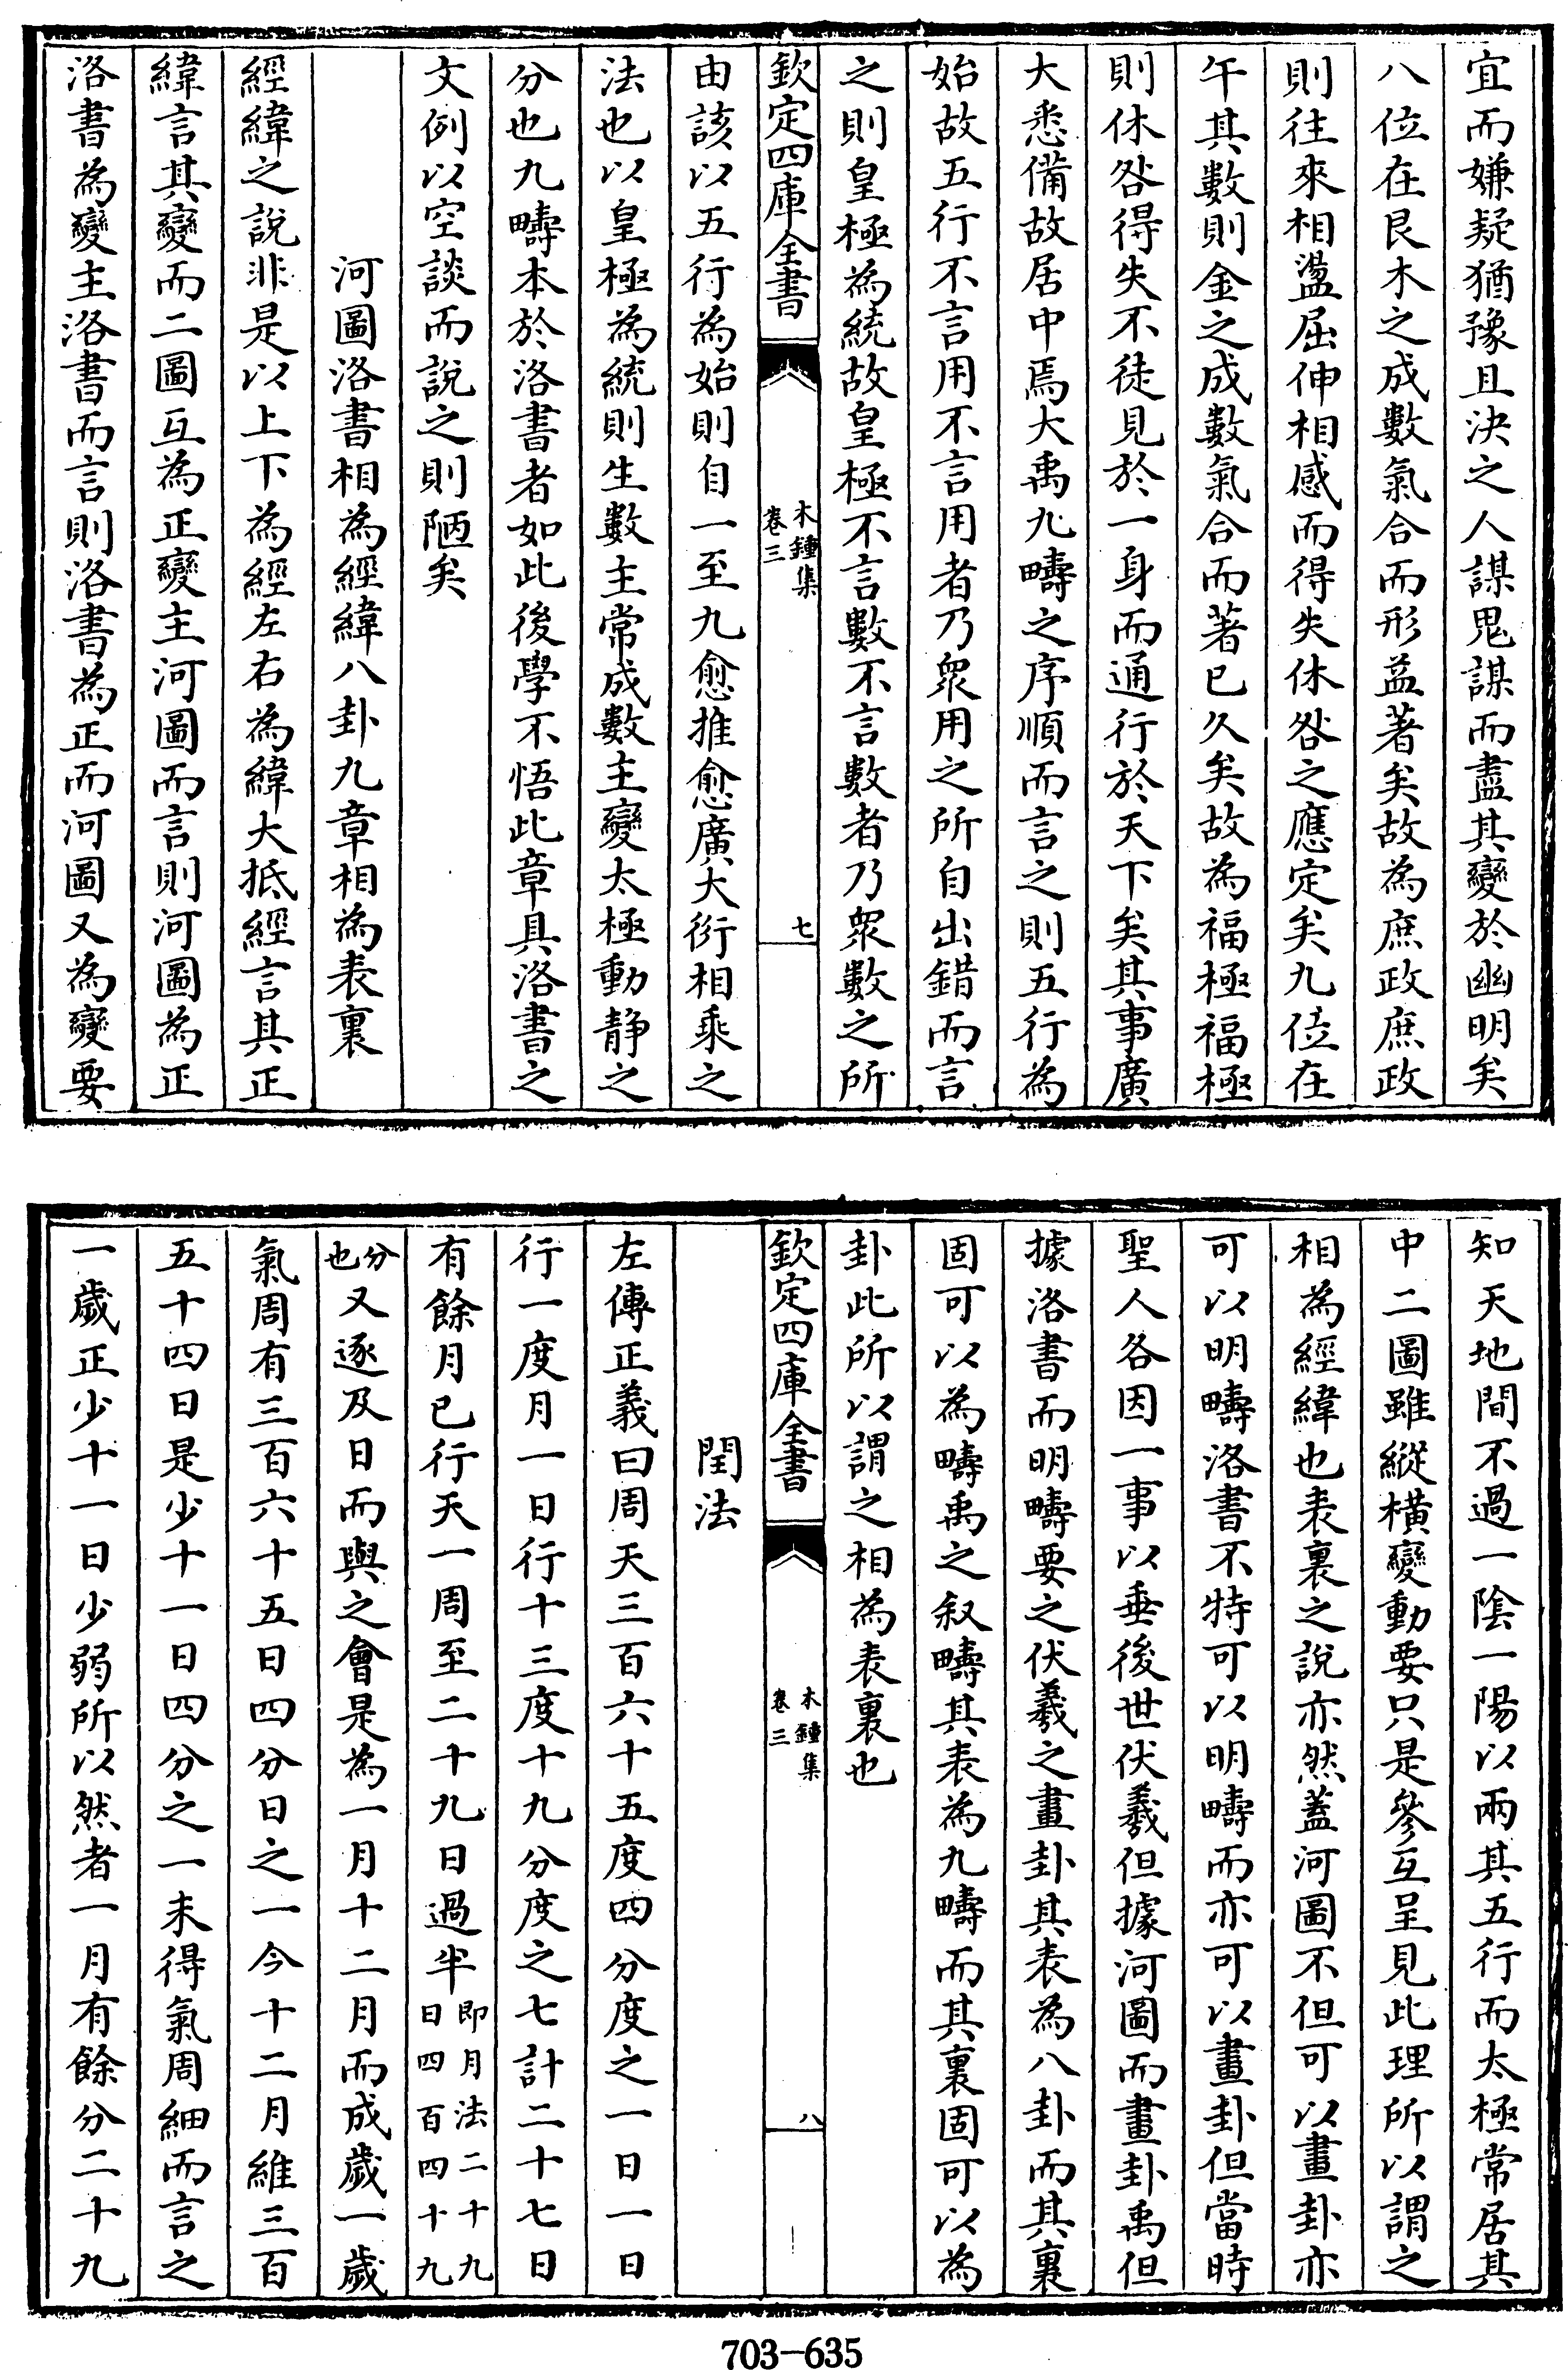 宜而嫌疑猶豫且決之人謀鬼謀而盡其變於幽明矣
八位在艮木之成數氣合而形益著矣故為庶政庶政
則往來相盪屈伸相感而得失休咎之應定矣九位在
午其數則金之成數氣合而著已久矣故為福極福極
則休咎得失不徒見於一身而通行於天下矣其事廣
大悉備故居中焉大禹九疇之序順而言之則五行為
始故五行不言用不言用者乃衆用之所自出錯而言
之則皇極為統故皇極不言數不言數者乃衆數之所
欽定四庫全書
木鍾集
卷三
七
由該以五行為始則自一至九愈推愈廣大衍相乘之
法也以皇極為統則生數主常成數主變太極動静之
分也九疇本於洛書者如此後學不悟此章具洛書之
文例以空談而說之則陋矣
河圖洛書相為經緯八卦九章相為表裏
經緯之說非是以上下為經左右為緯大抵經言其正
緯言其變而二圖互為正變主河圖而言則河圖為正
洛書為變主洛書而言則洛書為正而河圖又為變要
知天地間不過一陰一陽以兩其五行而太極常居其
中二圖雖縱橫變動要只是參互呈見此理所以謂之
相為經緯也表裏之說亦然蓋河圖不但可以畫卦亦
可以明疇洛書不特可以明疇而亦可以畫卦但當時
聖人各因一事以垂後世伏羲但據河圖而畫卦禹但
據洛書而明疇要之伏羲之畫卦其表為八卦而其裏
固可以為疇禹之叙疇其表為九疇而其裏固可以為
卦此所以謂之相為表裏也
欽定四庫全書
木鍾集
卷三
八
閏法
左傳正義曰周天三百六十五度四分度之一日一日
行一度月一日行十三度十九分度之七計二十七日
有餘月已行天一周至二十九日過半即月法二十九日四百四十九
分也又逐及日而與之會是為一月十二月而成歲一歲
氣周有三百六十五日四分日之一今十二月維三百
五十四日是少十一日四分之一未得氣周細而言之
一歲正少十一日少弱所以然者一月有餘分二十九
703-635